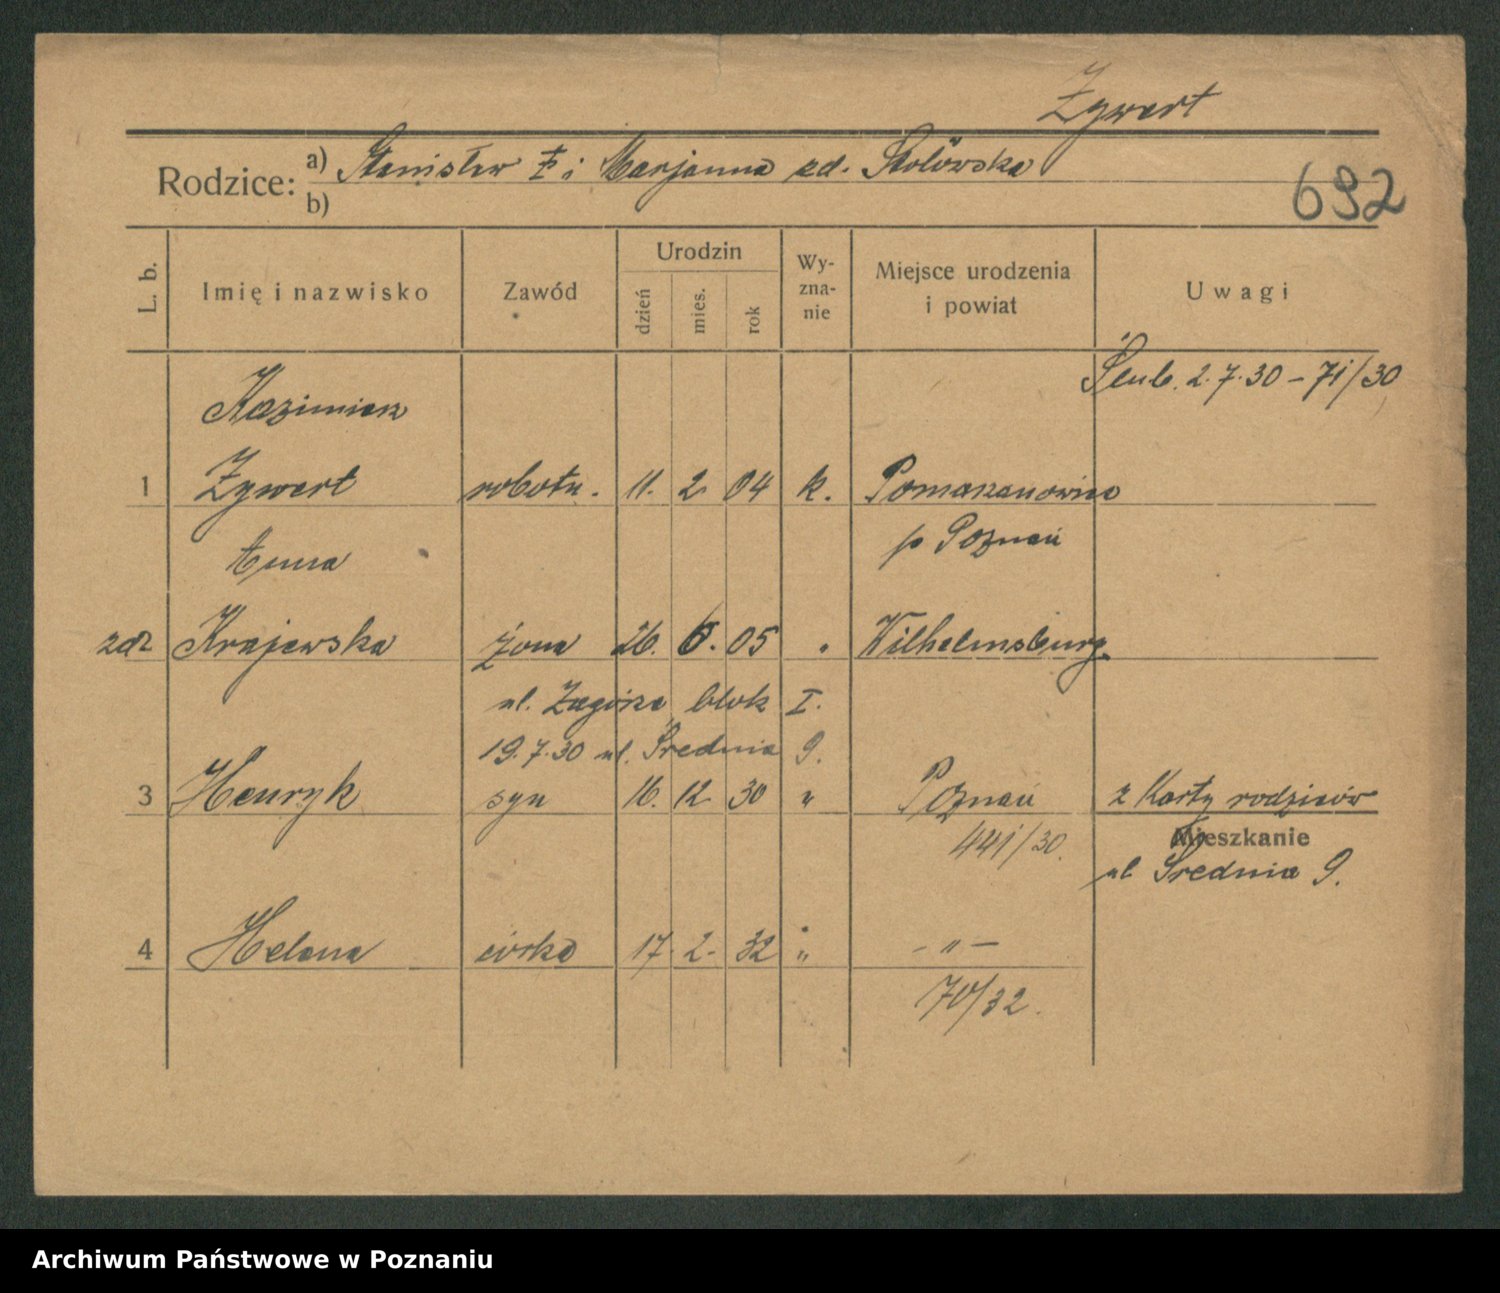 Zywert
Rodzice: a) Stanisław i Marjanna zd. Stolówska
b)
692
L. b. Imię i nazwisko Zawód Urodzin dzień mies. rok Wy-zna-nie Miejsce urodzenia i powiat Uwagi
Ślub. 2.7.30 – 71/30
Kazimierz
1 Zywert robotn. 11. 2 04 k. Pomarzanowice
p Poznań
Anna
zd 2 Krajewska żona 26. 6. 05 " Wilhelmsburg.
ul. Zagórze blok I.
19.7.30 ul. Średnia 9.
3 Henryk syn 16. 12 30 " Poznań z Karty rodziców
441/30. Mieszkanie
ul Średnia 9.
4 Helena córka 17. 2. 32 " – " –
70/32.
Archiwum Państwowe w Poznaniu